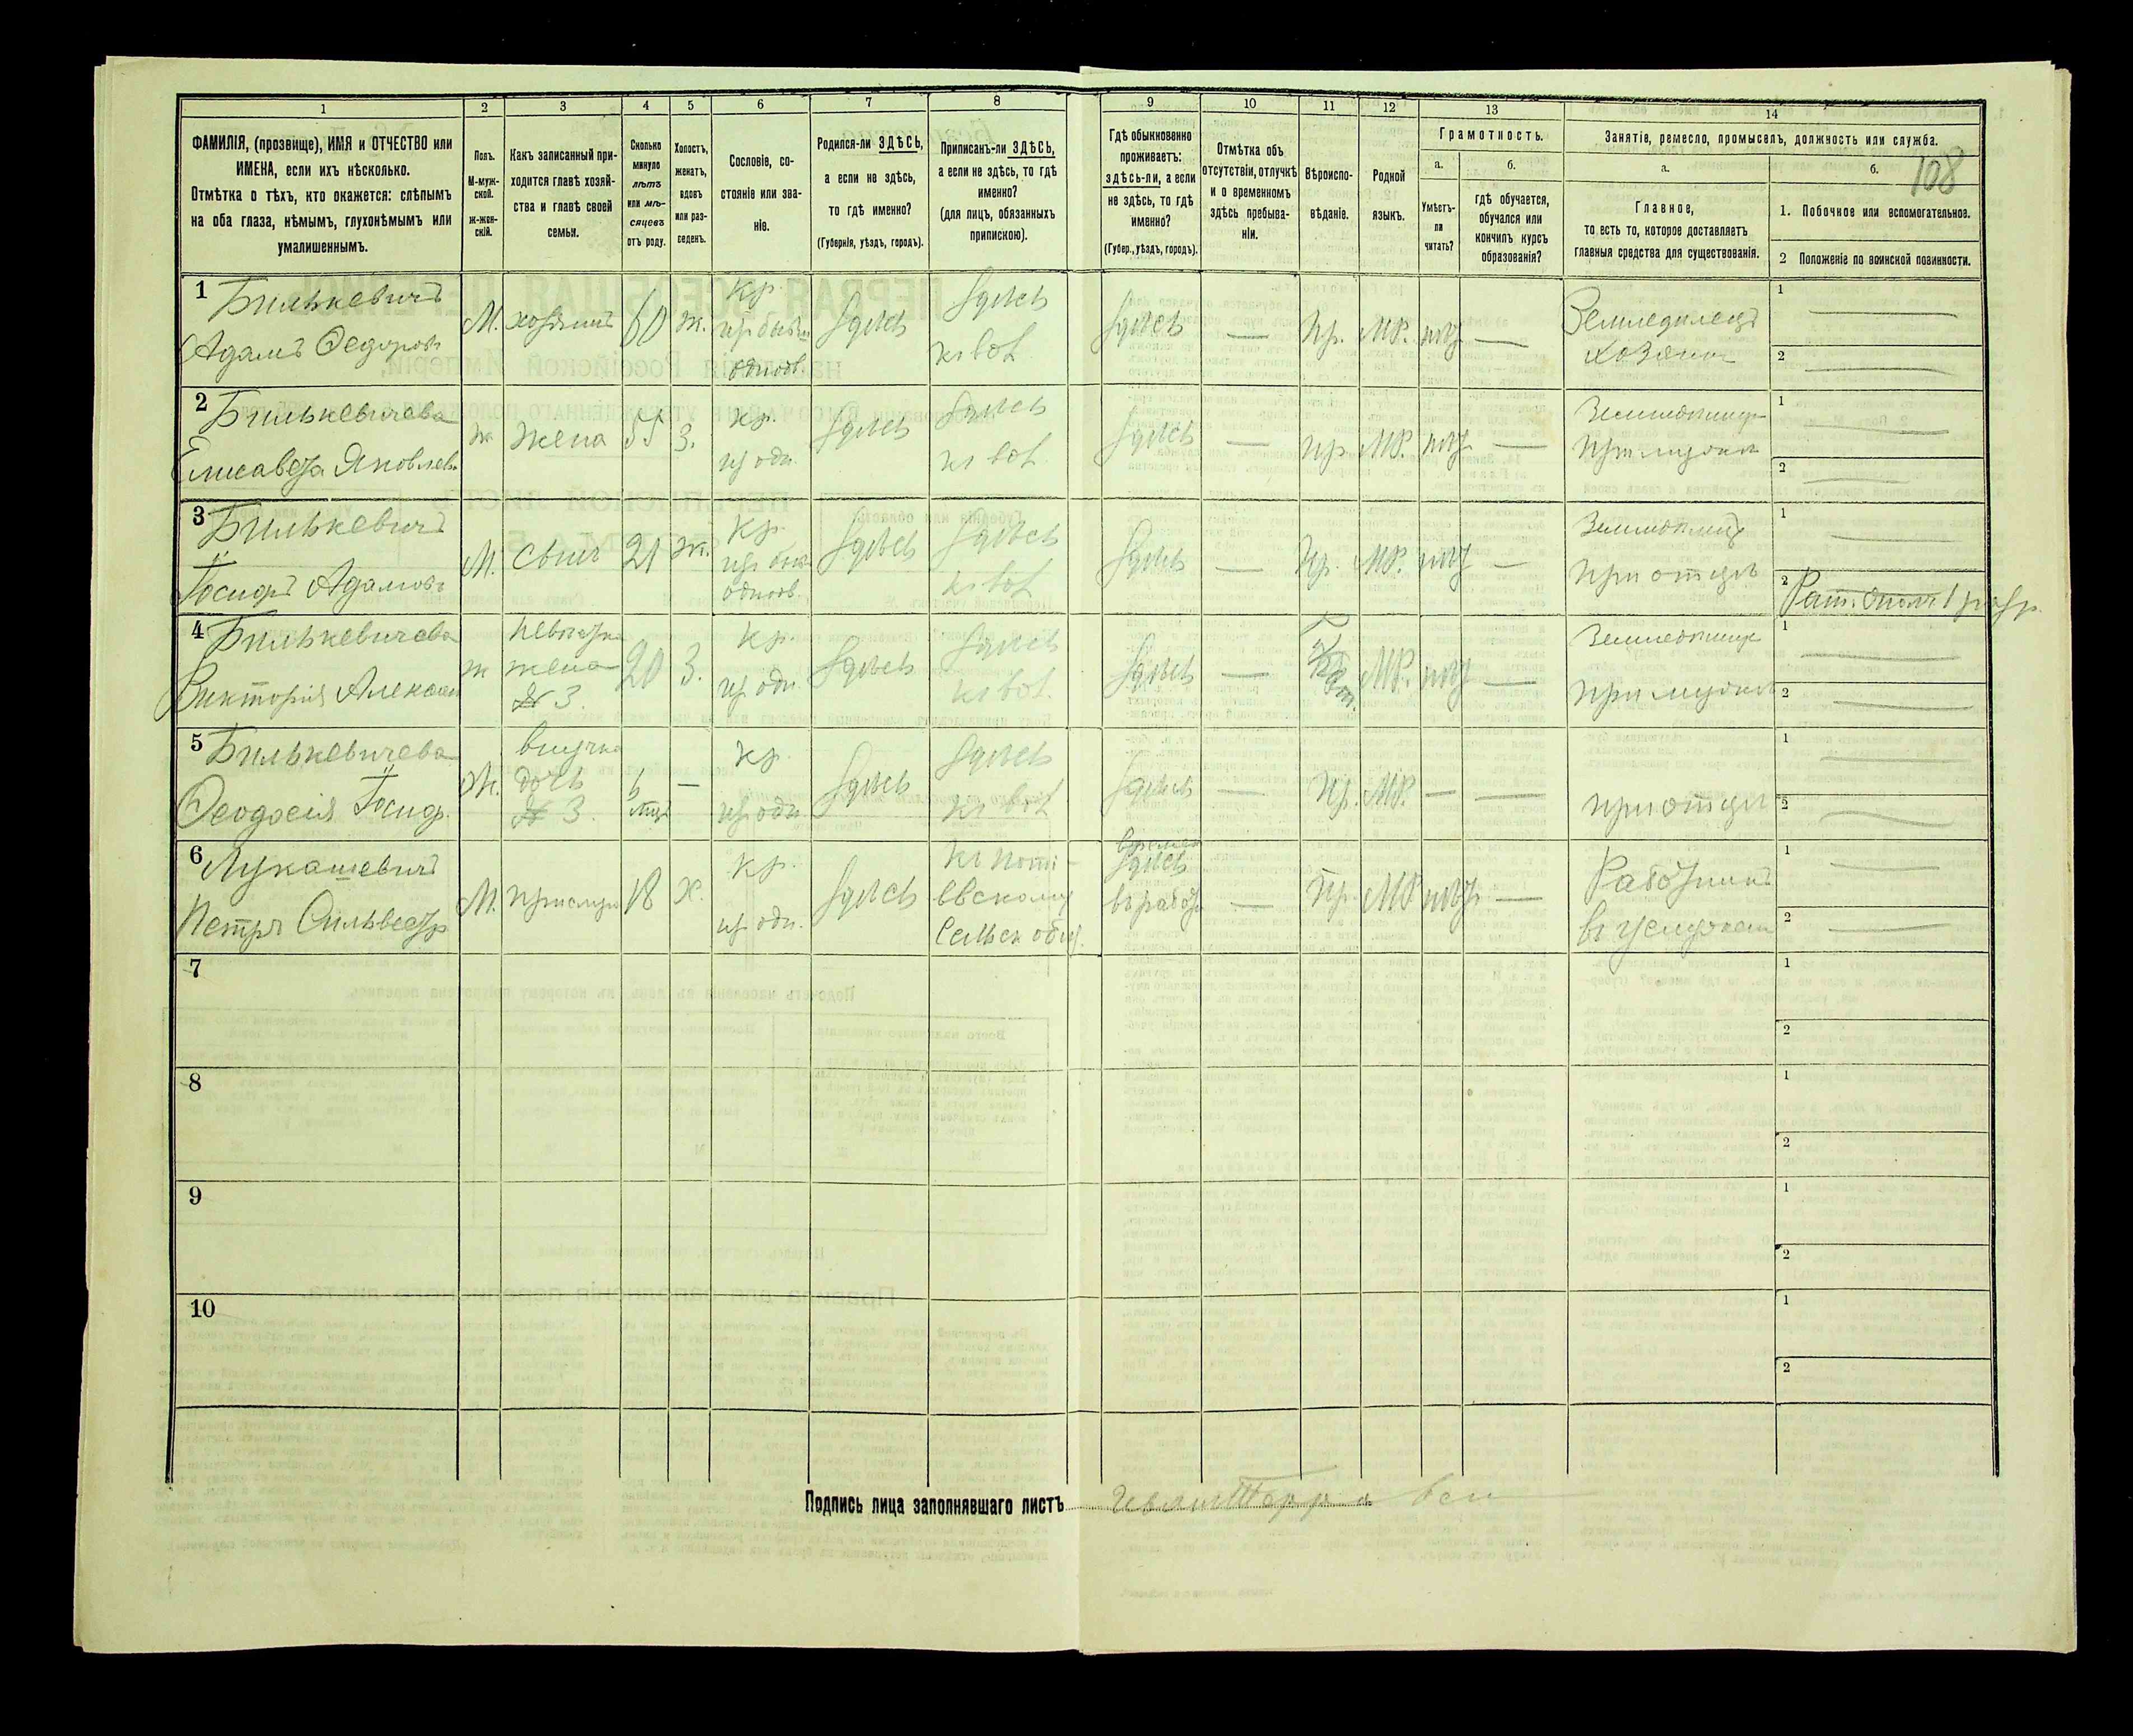 1 2 3 4 5 6 7 8 9 10 11 12 13 14
108
ФАМИЛІЯ, (прозвище), ИМЯ и ОТЧЕСТВО или
ИМЕНА, если ихъ нѣсколько.
Отмѣтка о тѣхъ, кто окажется: слѣпымъ
на оба глаза, нѣмымъ, глухонѣмымъ или
умалишеннымъ.
Полъ.
М-муж-
ской.
ж-жен-
скій.
Какъ записанный при-
ходится главѣ хозяй-
ства и главѣ своей
семьи.
Сколько
минуло
лѣтъ
или мѣ-
сяцевъ
отъ роду.
Холостъ,
женатъ,
вдовъ
или раз-
веденъ.
Сословіе, со-
стояніе или зва-
ніе.
Родился-ли ЗДѢСЬ,
а если не здѣсь,
то гдѣ именно?
(Губернія, уѣздъ, городъ).
Приписанъ-ли ЗДѢСЬ,
а если не здѣсь, то гдѣ
именно?
(для лицъ, обязанныхъ
припискою).
Гдѣ обыкновенно
проживаетъ:
здѣсь-ли, а если
не здѣсь, то гдѣ
именно?
(Губер., уѣздъ, городъ).
Отмѣтка объ
отсутствіи, отлучкѣ
и о временномъ
здѣсь пребыва-
ніи.
Вѣроиспо-
вѣданіе.
Родной
языкъ.
Грамотность.
а.
Умѣетъ-
ли
читать?
б.
гдѣ обучается,
обучался или
кончилъ курсъ
образованія?
Занятіе, ремесло, промыселъ, должность или служба.
а.
Главное,
то есть то, которое доставляетъ
главныя средства для существованія.
б.
1. Побочное или вспомогательное.
2 Положеніе по воинской повинности.
1 Билькевичъ
Адамъ Федоровъ
М. хозяинъ 60 ж. кр. одноов. здѣсь здѣсь
здѣсь — Пр. МР. — Земледѣлецъ
хозяинъ
1 —
2 —
2 Билькевичева
Елисавета Яковлев.
ж. жена 55 З. кр. здѣсь здѣсь
здѣсь — пр. МР. —
при мужѣ
1 —
2 —
3 Билькевичъ
Іосифъ Адамовъ
М. сынъ 21 ж. кр. одноов. здѣсь здѣсь
здѣсь — Пр. МР. —
при отцѣ
1 —
2 Рат. опол. 1 разр.
4 Билькевичева
Викторія Алексан
ж невѣстка
жена
№ 3.
20 З. кр. здѣсь здѣсь
здѣсь — МР. —
при мужѣ
1 —
2 —
5 Билькевичева
Ѳеодосія Іосиф.
Ж. внучка
дочь
№ 3.
6 мц. — кр. здѣсь здѣсь
здѣсь — Пр. МР. — —
при отцѣ
1 —
2 —
6 Лукашевичъ
Петръ Сильвестр
М. прислуга 18 Х. кр. здѣсь
евскому
Сельск общ.
здѣсь
въ работ. — Пр. МР —
Работникъ
въ услужен
1 —
2 —
7
1
2
8
1
2
9
1
2
10
1
2
Подпись лица заполнявшаго листъ